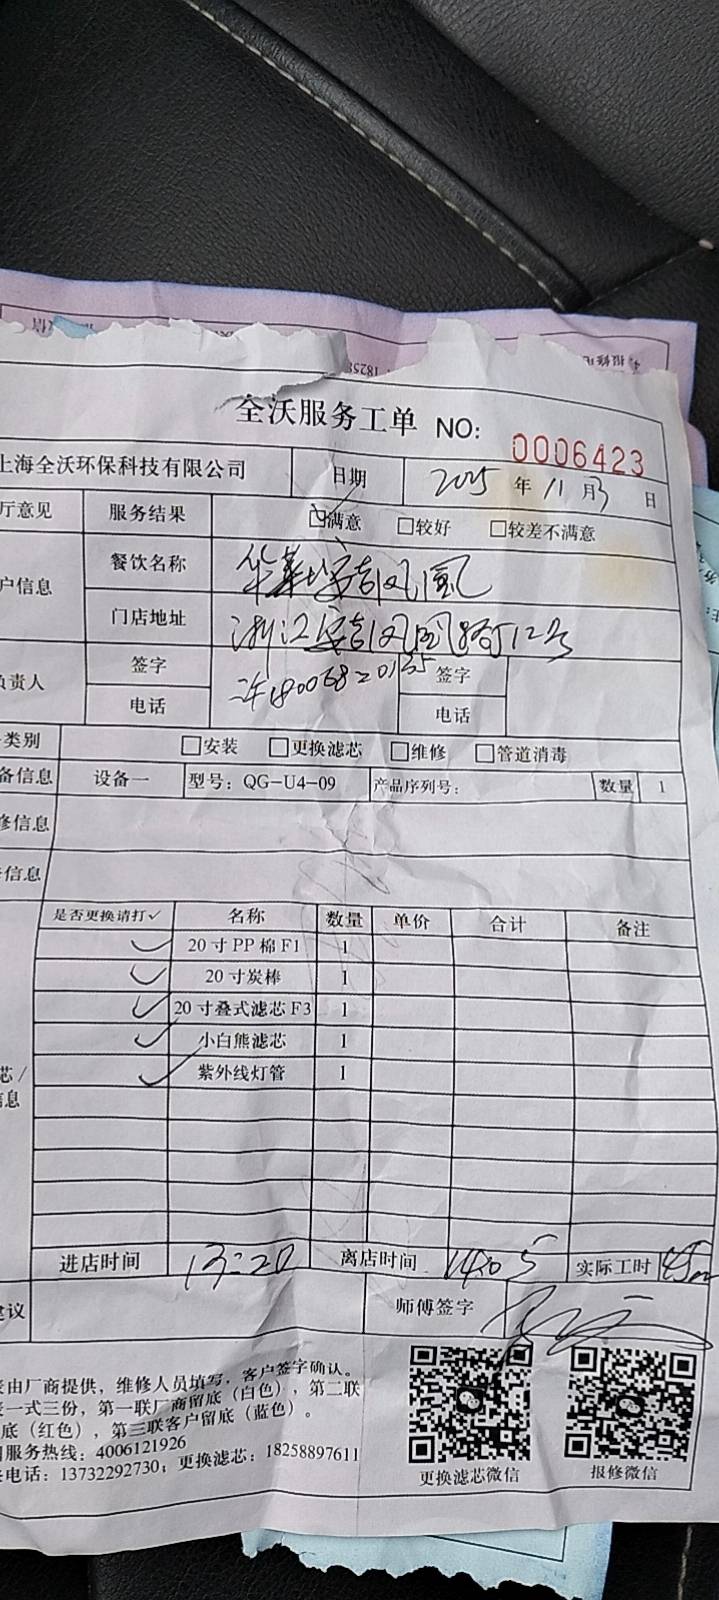 全沃服务工单 NO: 0006423
上海全沃环保科技有限公司 日期 2025 年 11 月 3 日
厅意见 服务结果 ☑满意 □较好 □较差不满意
户信息 餐饮名称 华莱士安吉凤凰
门店地址 浙江安吉凤凰路12号
负责人 签字 签字
电话 电话
类别 □安装 □更换滤芯 □维修 □管道消毒
备信息 设备一 型号：QG-U4-09 产品序列号： 数量 1
修信息
信息
是否更换请打✓ 名称 数量 单价 合计 备注
✓ 20寸PP棉F1 1
✓ 20寸炭棒 1
✓ 20寸叠式滤芯F3 1
✓ 小白熊滤芯 1
✓ 紫外线灯管 1
芯/
信息
进店时间 13:20 离店时间 14:05 实际工时
建议 师傅签字
由厂商提供，维修人员填写，客户签字确认。
一式三份，第一联厂商留底（白色），第二联
底（红色），第三联客户留底（蓝色）。
服务热线：4006121926
电话：13732292730；更换滤芯：18258897611
更换滤芯微信 报修微信